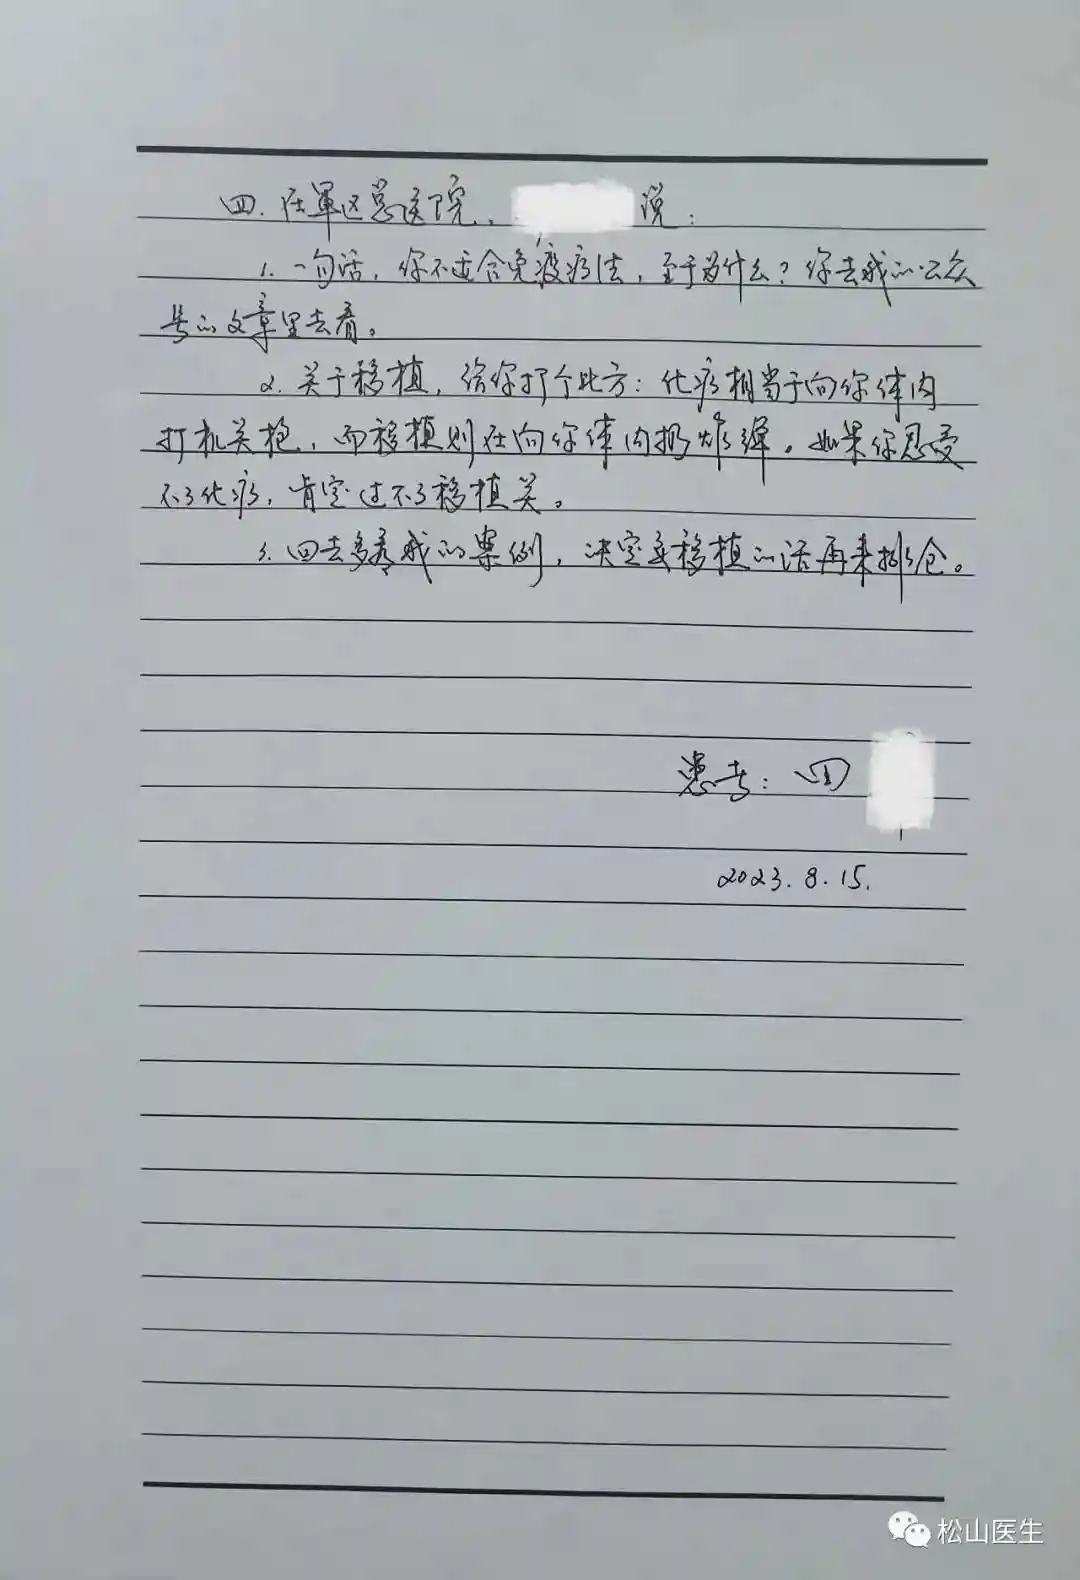 四.在军区总医院、 说:
1.一句话,你不适合免疫疗法,至于为什么?你去我的公众
号的文章里去看。
2.关于移植,给你打个比方:化疗相当于向你体内
打机关枪,而移植则在向你体内扔炸弹。如果你忍受
不了化疗,肯定过不了移植关。
3.回去多看我的案例,决定要移植的话再来排仓。
患者:
2023.8.15.
松山医生